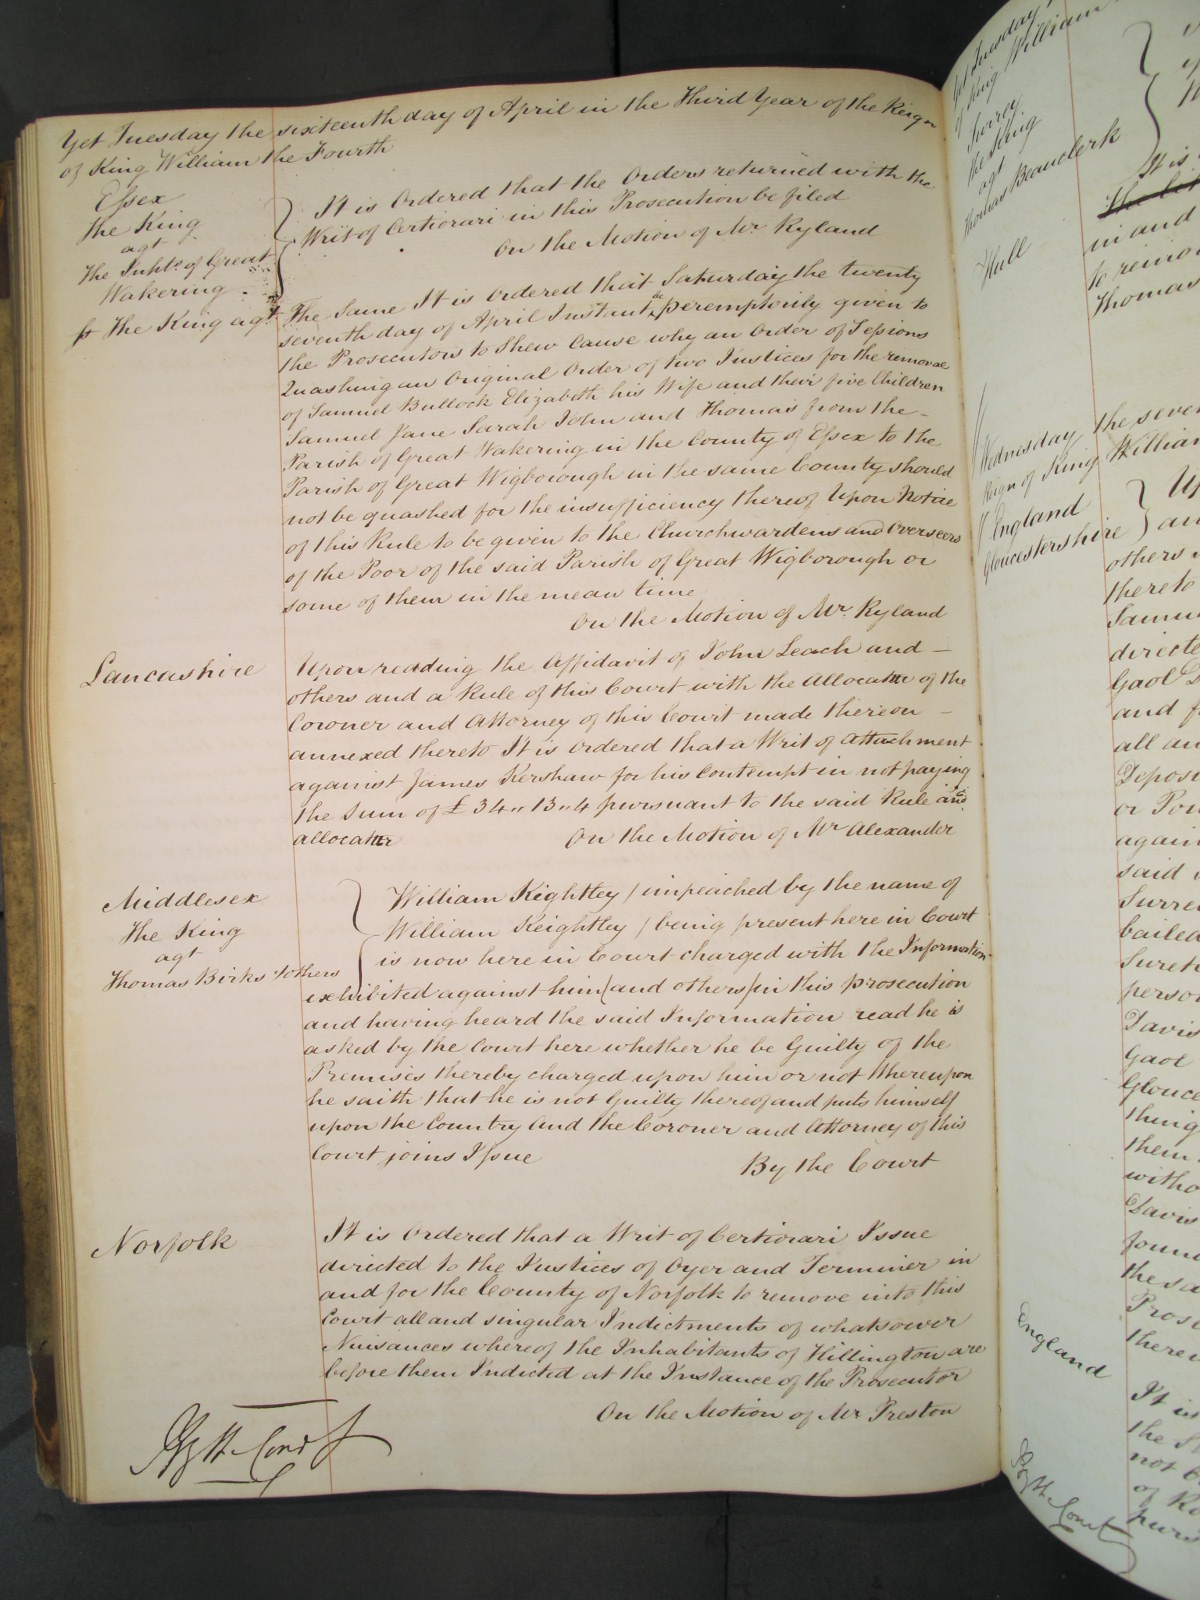 Yet Tuesday the sixteenth day of April in the Third Year of the Reign
of King William the Fourth
Essex
The King
agt
The Inhts. of Great
Wakering
It is Ordered that the Orders returned with the
Writ of Certiorari in this Prosecution be filed
On the Motion of Mr Ryland
The King agt The Same It is Ordered that Saturday the twenty
seventh day of April Instant be peremptorily given to
the Prosecutors to Shew Cause why an Order of Sessions
Quashing an Original Order of two Justices for the removal
of Samuel Bullock Elizabeth his Wife and their five Children
Samuel Jane Sarah John and Thomas from the
Parish of Great Wakering in the County of Essex to the
Parish of Great Wigborough in the same County should
not be quashed for the insufficiency thereof Upon Notice
of this Rule to be given to the Churchwardens and Overseers
of the Poor of the said Parish of Great Wigborough or
some of them in the mean time
On the Motion of Mr. Ryland
Lancashire
Upon reading the Affidavit of John Leach and
others and a Rule of this Court with the allocatur of the
Coroner and Attorney of this Court made thereon
annexed thereto It is ordered that a Writ of Attachment
against James Kershaw for his Contempt in not paying
the Sum of £34 " 13 " 4 pursuant to the said Rule and
allocatur
On the Motion of Mr Alexander
Middlesex
The King
agt
Thomas Birks & others
William Kightley / impeached by the name of
William Keightley / being present here in Court
is now here in Court charged with the Information
exhibited against him (and others) in this prosecution
and having heard the said Information read he is
asked by the Court here whether he be Guilty of the
Premises thereby charged upon him or not Whereupon
he saith that he is not Guilty thereof and puts himself
upon the Country And the Coroner and Attorney of this
Court joins Issue
By the Court
Norfolk
It is Ordered that a Writ of Certiorari Issue
directed to the Justices of Oyer and Terminer in
and for the County of Norfolk to remove into this
Court all and singular Indictments of whatsoever
Nuisances whereof the Inhabitants of Hillington are
before them Indicted at the Instance of the Prosecutor
On the Motion of Mr Preston
By the Court
Yet Tuesday
of King William
Surrey
The King
agt
Thomas Beauclerk
It is
in and
to remo
Thomas
Hull
Wednesday the seve
Reign of King William
England
Gloucestershire
others
thereto
Samu
directe
Gaol D
and f
all an
Deposi
or Pow
again
said
Surre
bailed
Sureti
person
Davis
Gaol
Glouce
thing
them
witho
Davis
foun
the sa
Prose
there
England
It is
the S
not b
of
purs
By the Court